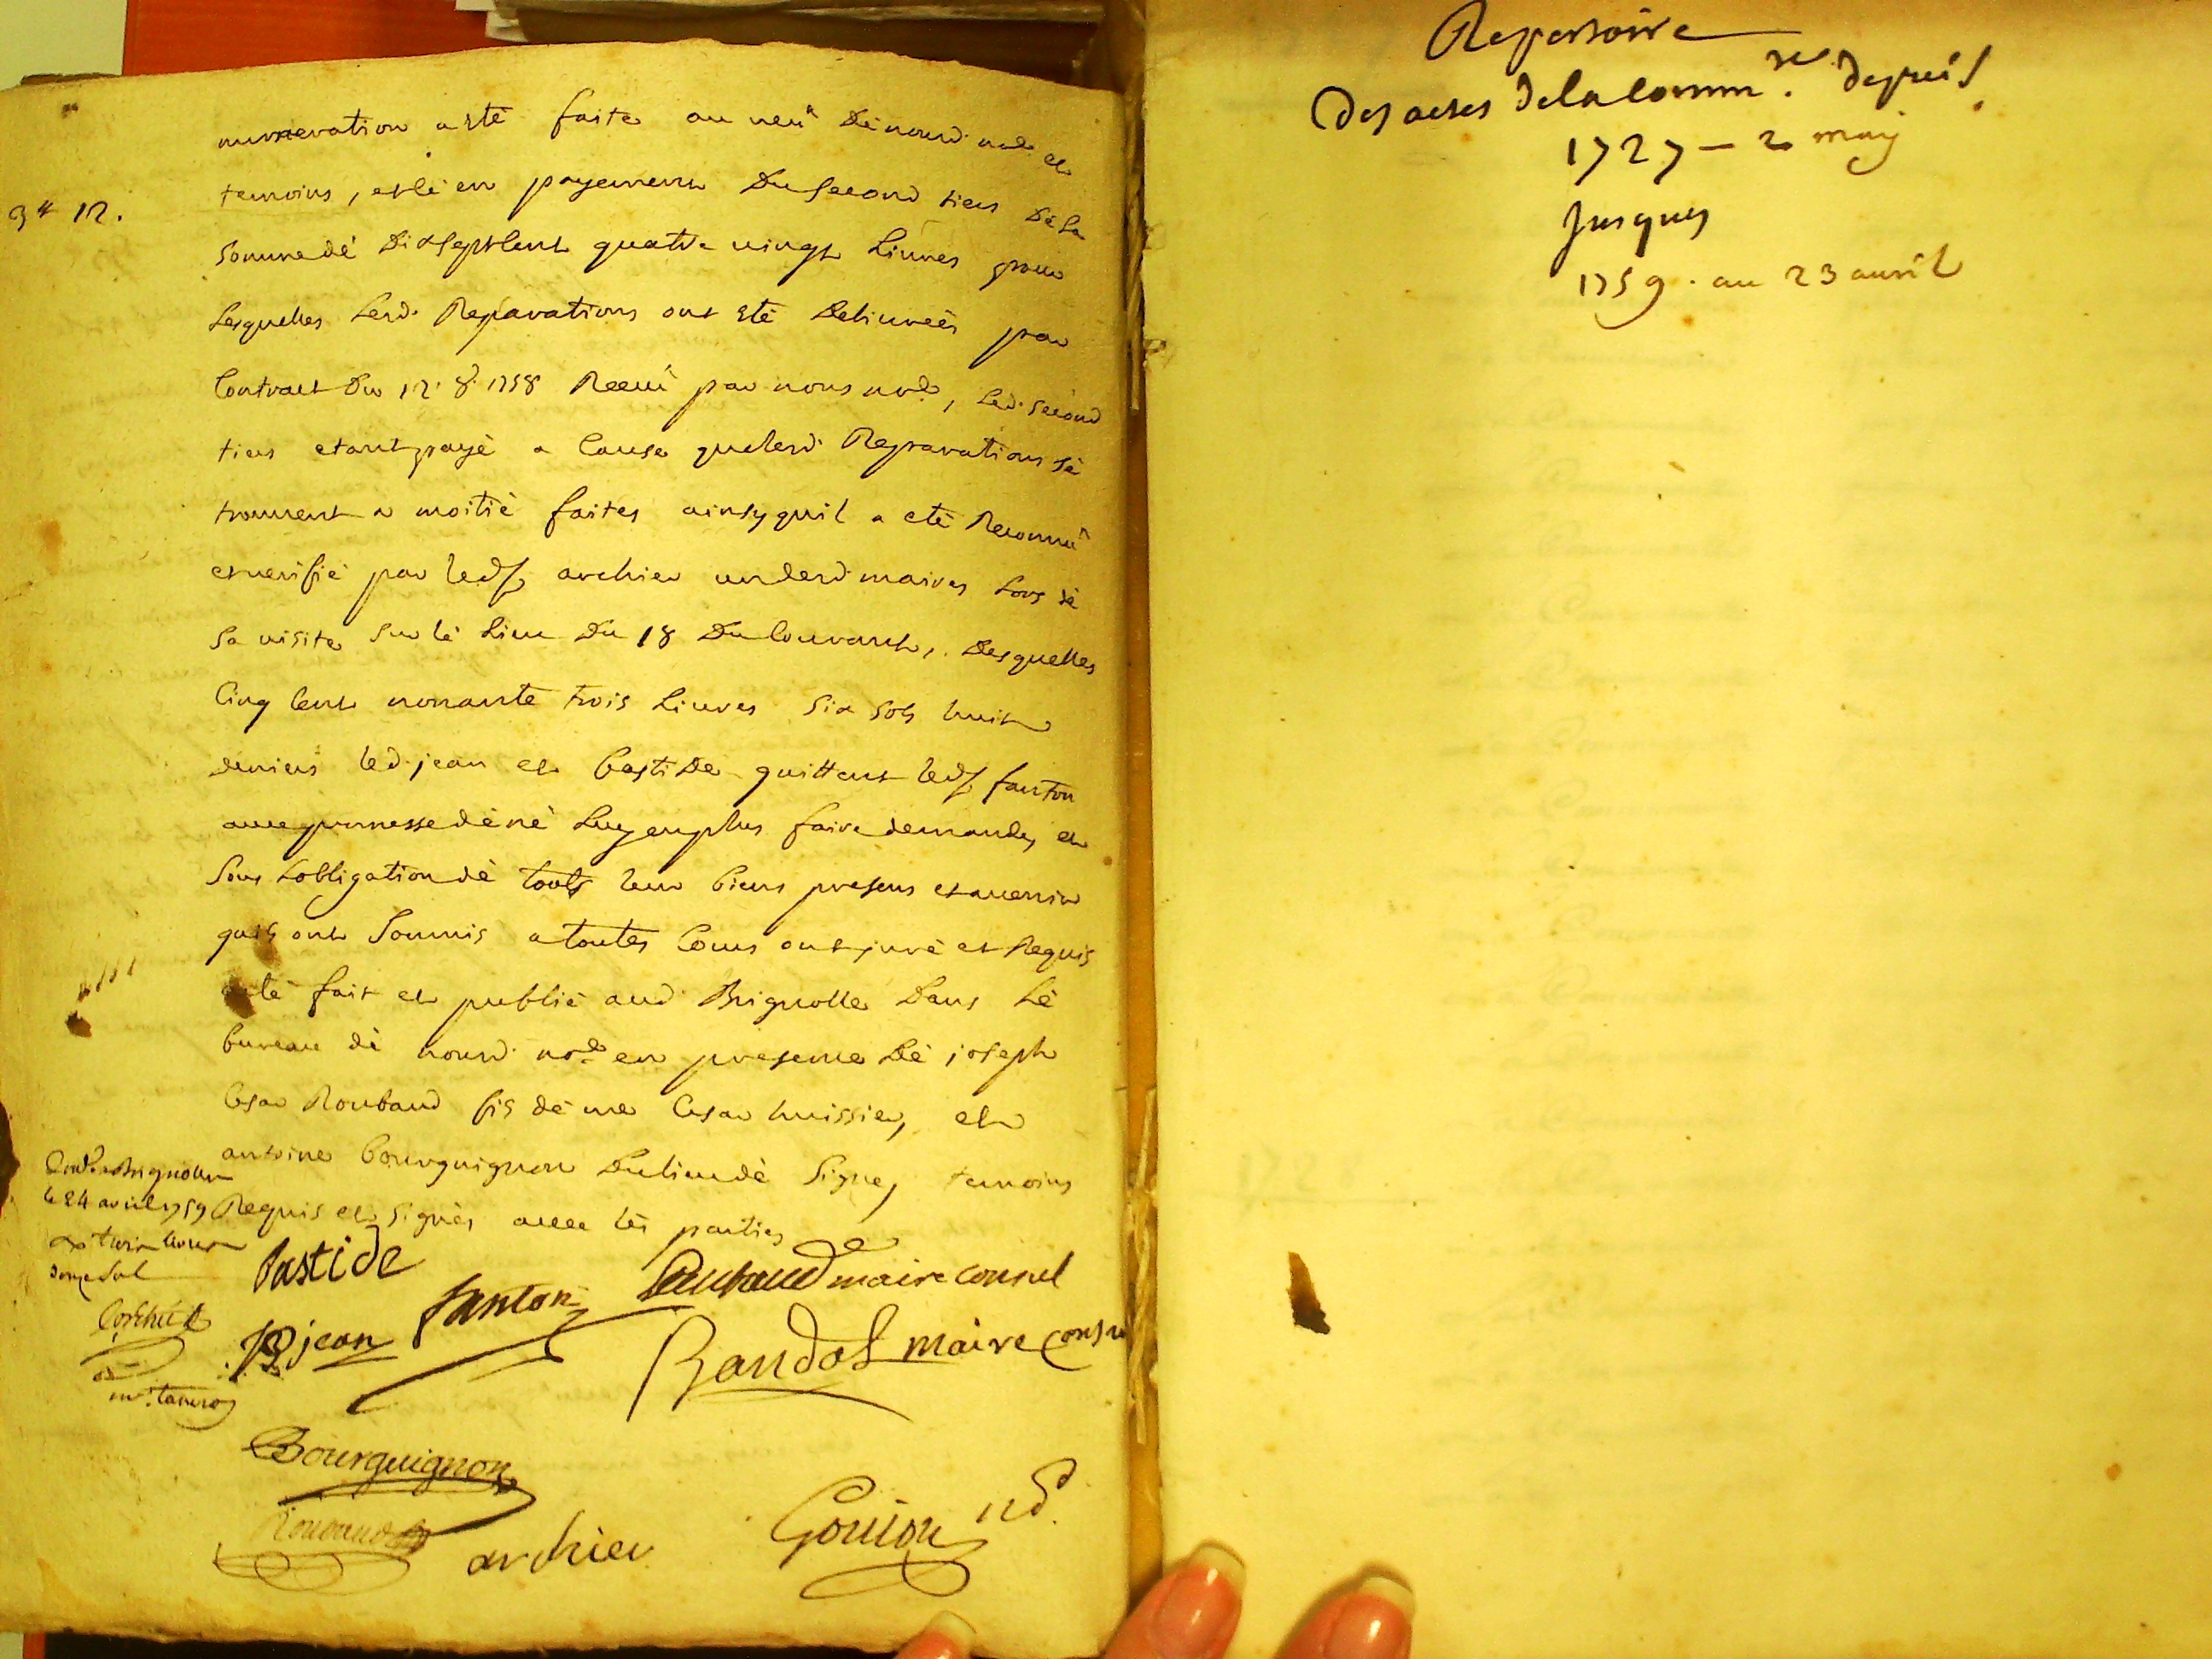 numeration a eté faite au veu de nousd. nore et
temoins, et c'é en payement du second tiers dé la
somme dé dixsept cent quatre vingt livres pour
lesquelles lesd. Reparations ont eté délivreés par
Contract du 12. 8. 1758 Receu par nous nore, led. sécond
tiers etant payé a Cause que lesd. Reparations sé
trouvent a moitié faites ainsy quil a eté Reconnu
et verifié par led. Sr archier un desd. maires Lors dé
sa visite sur lé Lieu du 18 du Courant, desquelles
Cinq Cent nonante trois Livres six sols huit
deniers led. jean et Bastide quittent led. Sr fanton
avec promesse dé né Luy en plus faire demande, et
sous L'obligation dé touts leur biens presens et avenir
quils ont soumis a toutes Cours ont juré et Requis
acte fait et publié aud. Brignolle dans Lé
bureau dé nousd. nore en presence dé joseph
Cesar Roubaud fis dé me Cesar huissier, et
antoine Bourguignon du lieu dé Signe, temoins
Requis et signés avec lés parties
3# 12.
Conlé a Brignolle
le 24 avril 1759
Rx trois livres
douze sols
Bastide
fanton
maire consul
JB jean
Randol maire consu
Bourguignon
Roubaud
archier
Goujon nore
Repertoire
Des actes de la Commté. depuis
1727 - 2 may
Jusques
1759. au 23 avril